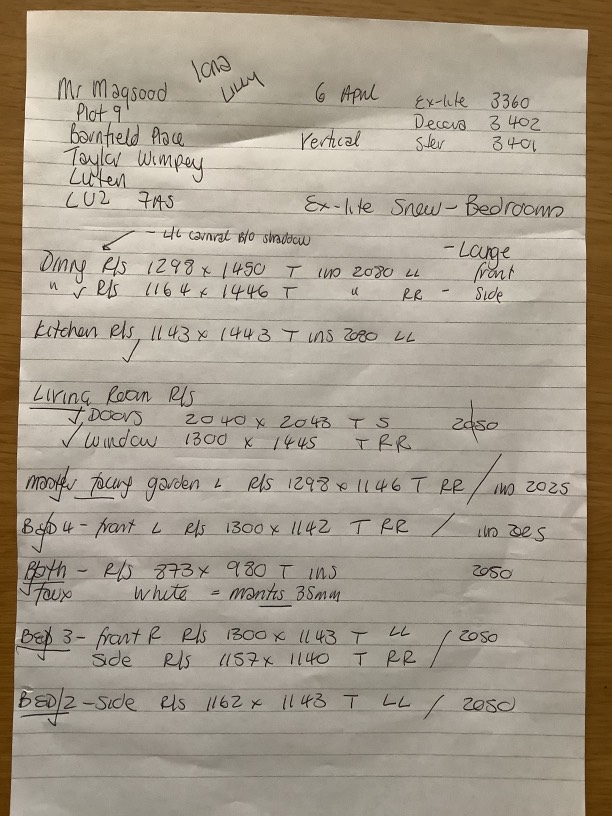 Mr Maqsood
6 April
Ex-lite 3360
Plot 9
Decora 3402
Barnfield Place
Vertical
Slev 3401
Taylor Wimpey
Luten
LU2 7AS
Ex-lite Snew - Bedrooms
B/O shadow
- Large
Dinng R/s 1298 x 1450 T ins 2080 LL front
" R/s 1164 x 1446 T " RR - side
Kitchen R/s 1143 x 1443 T ins 2080 LL
Living Room R/s
Doors 2040 x 2043 T S 2050
Window 1300 x 1445 T RR
Master facing garden L R/s 1298 x 1146 T RR / ins 2025
BED 4 - front L R/s 1300 x 1142 T RR / ins 2025
Bath - R/s 873 x 980 T ins 2050
faux White = mantis 35mm
BED 3 - front R R/s 1300 x 1143 T LL / 2050
Side R/s 1157 x 1140 T RR /
BED 2 - side R/s 1162 x 1143 T LL / 2050